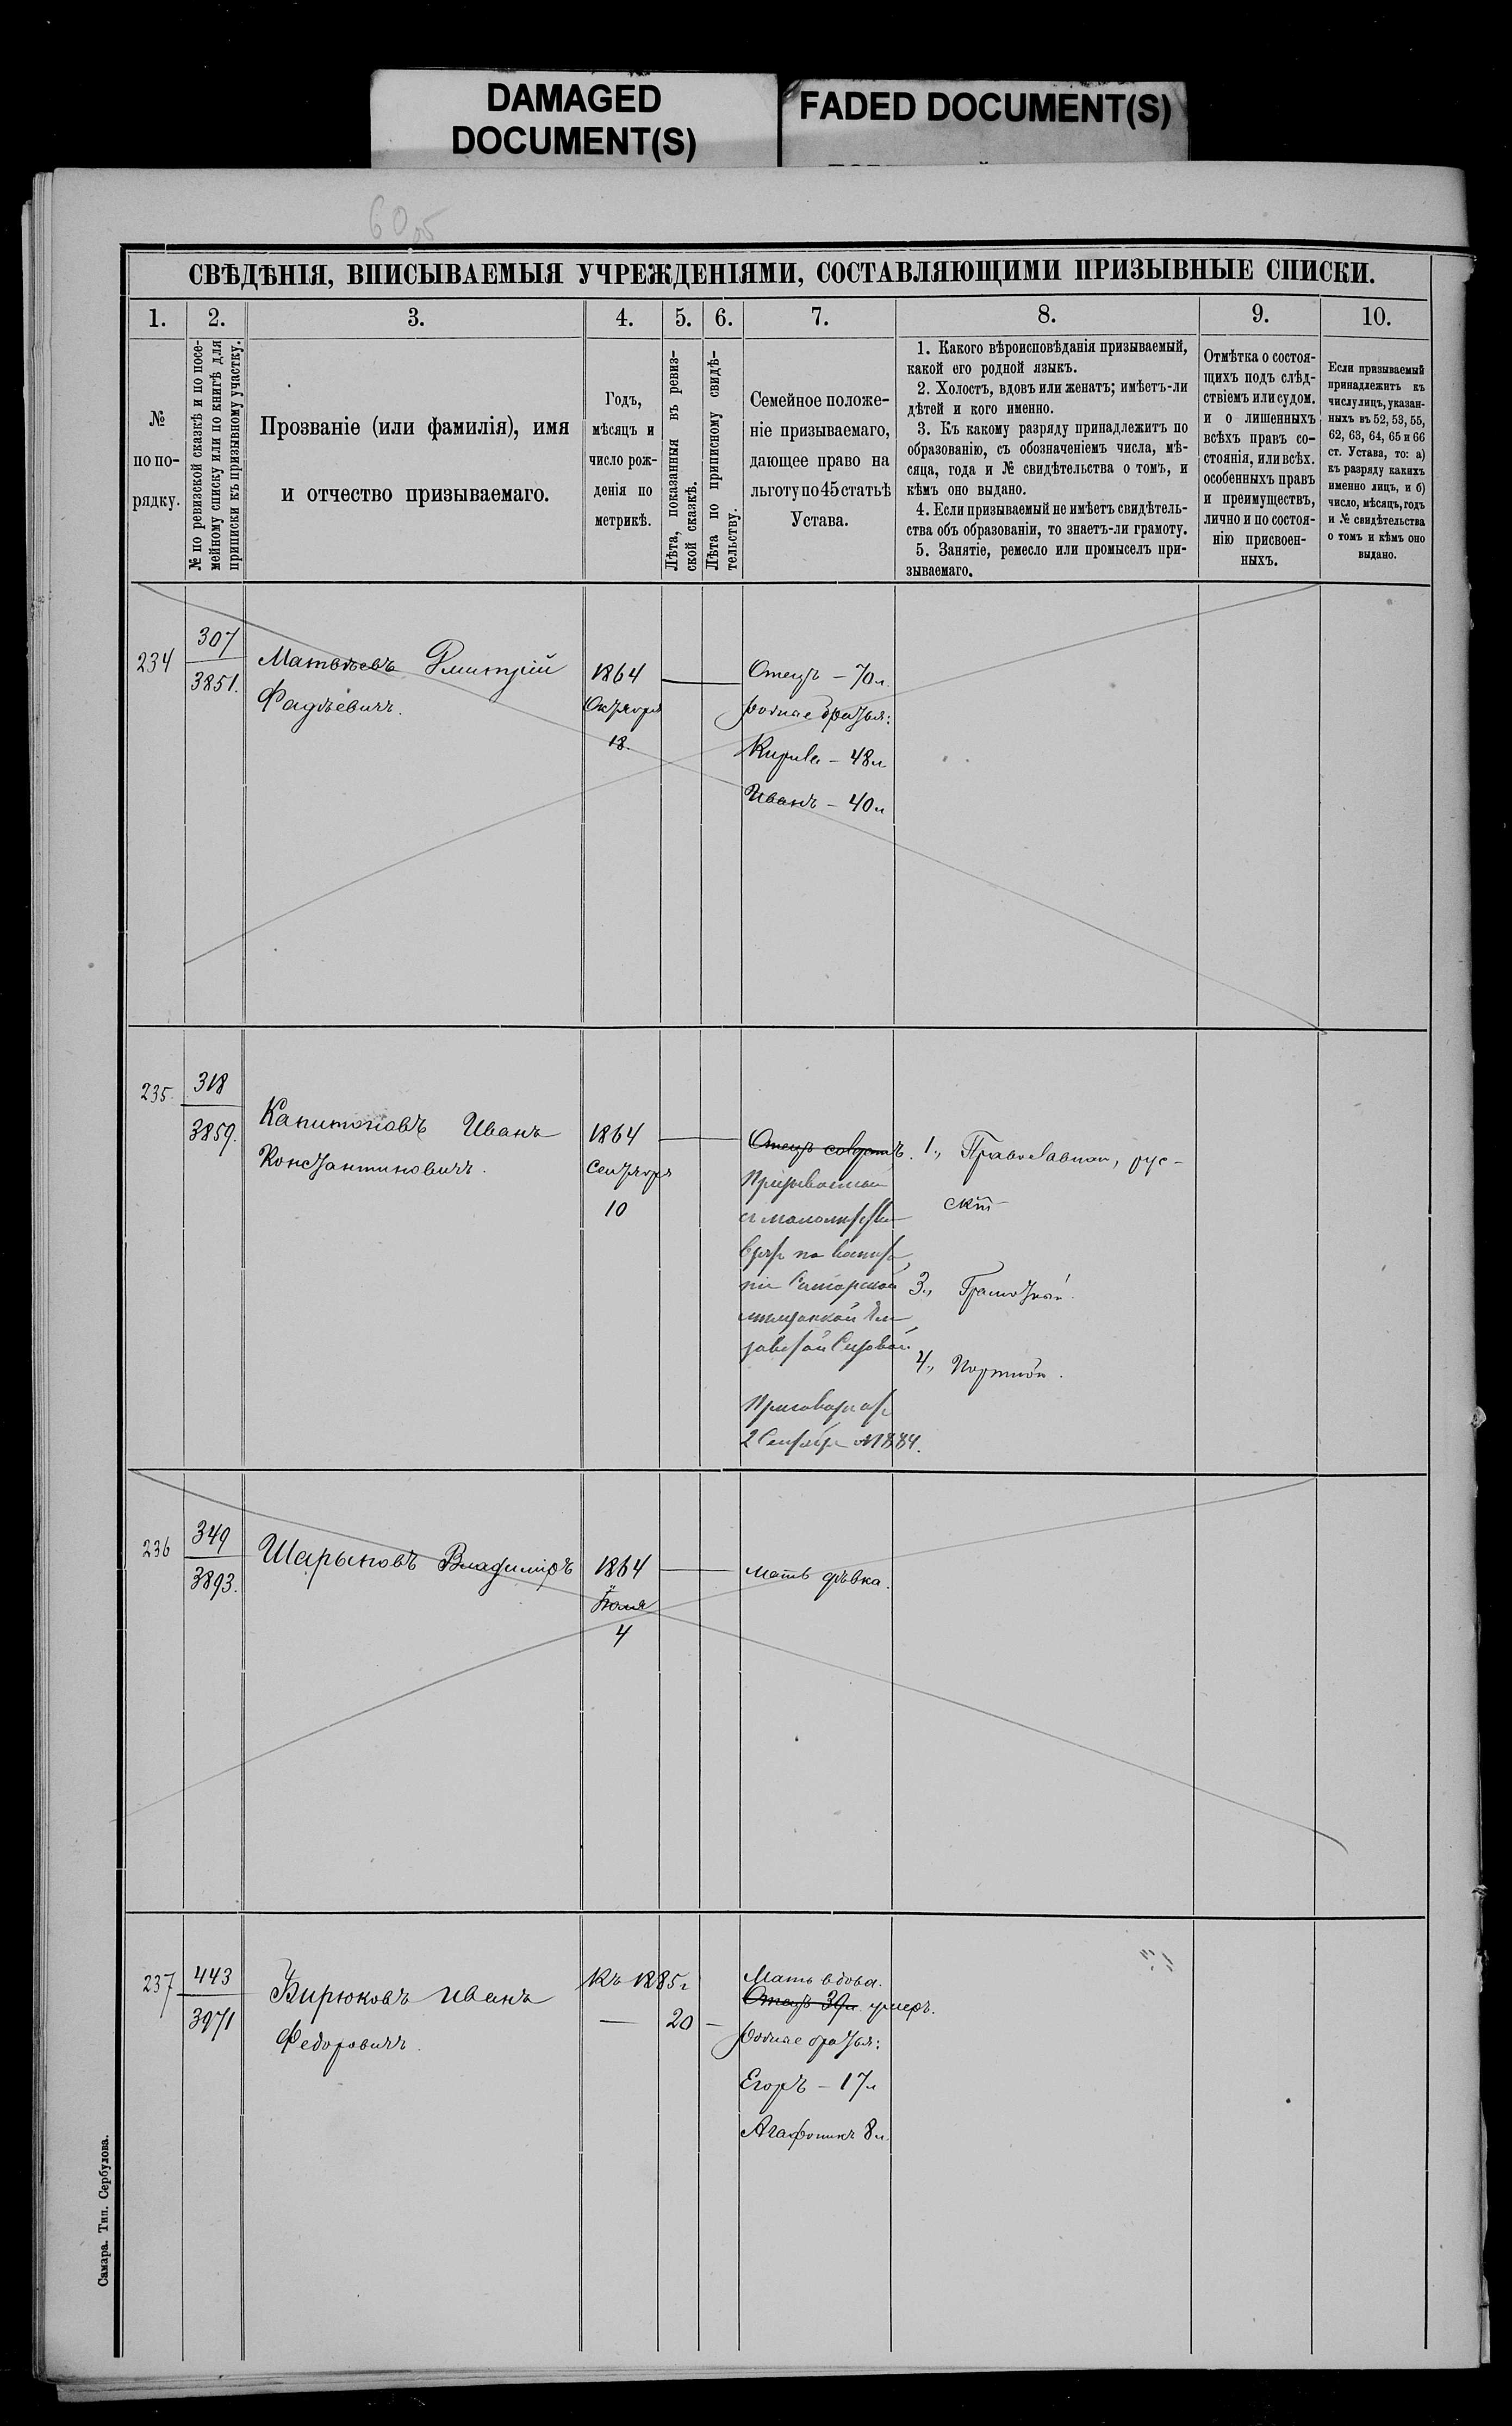 DAMAGED
DOCUMENT(S)
FADED DOCUMENT(S)
СВѢДѢНІЯ, ВПИСЫВАЕМЫЯ УЧРЕЖДЕНІЯМИ, СОСТАВЛЯЮЩИМИ ПРИЗЫВНЫЕ СПИСКИ.
1.
№
по по-
рядку.
2.
№ по ревизской сказкѣ и по посе-
мейному списку или по книгѣ для
приписки къ призывному участку.
3.
Прозваніе (или фамилія), имя
и отчество призываемаго.
4.
Годъ,
мѣсяцъ и
число рож-
денія по
метрикѣ.
5.
Лѣта, показанныя въ ревиз-
ской сказкѣ.
6.
Лѣта по приписному свидѣ-
тельству.
7.
Семейное положе-
ніе призываемаго,
дающее право на
льготу по 45 статьѣ
Устава.
8.
1. Какого вѣроисповѣданія призываемый,
какой его родной языкъ.
2. Холостъ, вдовъ или женатъ; имѣетъ-ли
дѣтей и кого именно.
3. Къ какому разряду принадлежитъ по
образованію, съ обозначеніемъ числа, мѣ-
сяца, года и № свидѣтельства о томъ, и
кѣмъ оно выдано.
4. Если призываемый не имѣетъ свидѣтель-
ства объ образованіи, то знаетъ-ли грамоту.
5. Занятіе, ремесло или промыселъ при-
зываемаго.
9.
Отмѣтка о состоя-
щихъ подъ слѣд-
ствіемъ или судом.
и о лишенныхъ
всѣхъ правъ со-
стоянія, или всѣх.
особенныхъ правъ
и преимуществъ,
лично и по состоя-
нію присвоен-
ныхъ.
10.
Если призываемый
принадлежитъ къ
числу лицъ, указан-
ныхъ въ 52, 53, 55,
62, 63, 64, 65 и 66
ст. Устава, то: а)
къ разряду какихъ
именно лицъ, и б)
число, мѣсяцъ, годъ
и № свидѣтельства
о томъ и кѣмъ оно
выдано.
234
307
3851.
Матвѣевъ Дмитрій
Фадѣевичъ.
1864
Октября
18.
Отецъ – 70 л.
родные братья:
Кирила – 48 л
Иванъ – 40 л
235.
318
3859.
Капитоновъ Иванъ
Константиновичъ.
1864
Сентября
10
Отецъ
Призываемый
Самарской
Приговоръ отъ
2 Сентября 1884.
1., Православный, рус-
скій
3., Грамотный.
4., Портной.
236
349
3893.
Шарыновъ Владиміръ
1864
Іюля
4
мать дѣвка.
237
443
3971
Бирюковъ Иванъ
Федоровичъ.
Къ 1885 г
— 20 –
Мать вдова.
Отецъ 39 л. умеръ.
родные братья:
Егоръ – 17 л
Агафоникъ 8 л.
Самара. Тип. Сербулова.